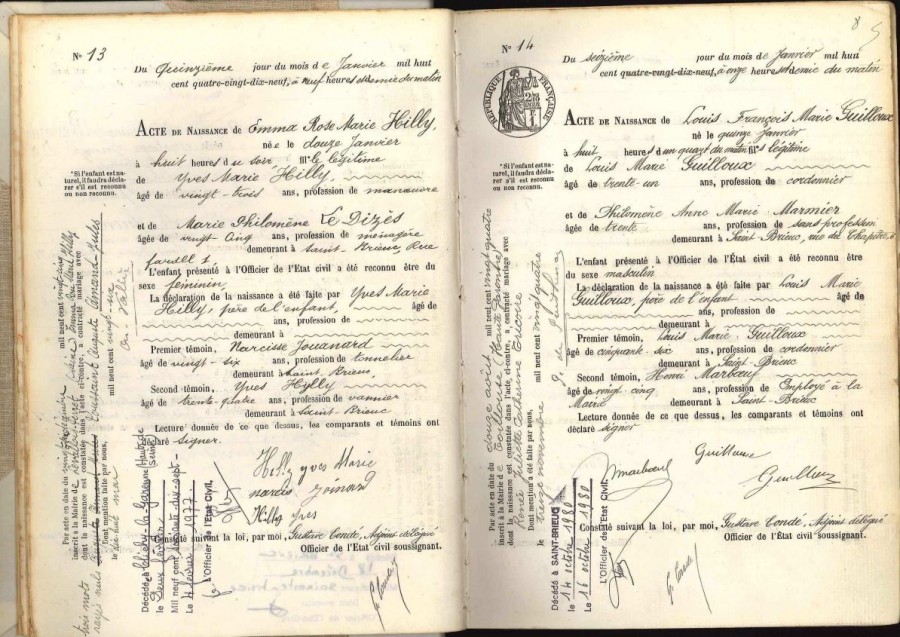 N° 13
Du Quinzième jour du mois de Janvier mil huit
cent quatre-vingt-dix-neuf, à neuf heures et demie du matin
ACTE DE NAISSANCE de Emma Rose Marie Hilly,
née le douze Janvier
à huit heures du soir fille légitime
de Yves Marie Hilly,
âgé de vingt-trois ans, profession de manœuvre
et de Marie Philomène Le Dizès
âgée de vingt-cinq ans, profession de ménagère
demeurant à Saint-Brieuc, Rue
L'enfant présenté à l'Officier de l'Etat civil a été reconnu être du
sexe féminin,
La déclaration de la naissance a été faite par Yves Marie
Hilly, père de l'enfant, âgé de
ans, profession de
demeurant à
Premier témoin, Narcisse Jouanard
âgé de vingt-six ans, profession de tonnelier
demeurant à Saint-Brieuc,
Second témoin, Yves Hilly
âgé de trente-quatre ans, profession de vannier
demeurant à Saint-Brieuc
Lecture donnée de ce que dessus, les comparants et témoins ont
déclaré signer.
Hilly yves Marie
Hilly Yves
Constaté suivant la loi, par moi, Gustave Conde, Adjoint délégué
Officier de l'Etat civil soussignant.
*Si l'enfant est naturel,
il faudra déclarer
s'il est reconnu
ou non reconnu.
Par acte en date du
inscrit à la Mairie de
dont la naissance est constatée dans l'acte ci-contre, a contracté mariage avec
mil neuf cent vingt-un
Dont mention faite par nous,
le dix-huit mai
trois mots
rayés nuls
Décédée à Clichy la Garenne
le Deux février
Mil neuf cent soixante-dix-sept
Le 4 février 1977
L'Officier de l'Etat Civil,
8
N° 14
Du seizième jour du mois de Janvier mil huit
cent quatre-vingt-dix-neuf, à onze heures et demie du matin
RÉPUBLIQUE FRANÇAISE
ACTE DE NAISSANCE de Louis François Marie Guilloux
né le quinze Janvier
à huit heures d un quart du matin fils légitime
de Louis Marie Guilloux
âgé de trente-un ans, profession de cordonnier
et de Philomène Anne Marie Marmier
âgée de trente ans, profession de sans profession
demeurant à Saint-Brieuc, rue du Chapitre, 6
L'enfant présenté à l'Officier de l'Etat civil a été reconnu être du
sexe masculin
La déclaration de la naissance a été faite par Louis Marie
Guilloux, père de l'enfant âgé de
ans, profession de
demeurant à
Premier témoin, Louis Marie Guilloux
âgé de cinquante-six ans, profession de cordonnier
demeurant à Saint-Brieuc
Second témoin, Henri Marbœuf
âgé de vingt-cinq ans, profession de Employé à la
Mairie demeurant à Saint-Brieuc
Lecture donnée de ce que dessus, les comparants et témoins ont
déclaré signer
Guilloux
Marbœuf
Guilloux
Constaté suivant la loi, par moi, Gustave Conde, Adjoint délégué
Officier de l'Etat civil soussignant.
*Si l'enfant est naturel,
il faudra déclarer
s'il est reconnu
ou non reconnu.
Par acte en date du douze août mil neuf cent vingt quatre
inscrit à la Mairie de Toulouse (Haute Garonne)
dont la naissance est constatée dans l'acte ci-contre, a contracté mariage avec
Renée Juliette
Dont mention faite par nous,
treize novembre mil neuf cent vingt quatre
Décédé à SAINT-BRIEUC
le 14 octobre 1980
Le 16 octobre 1980
L'Officier de l'Etat Civil,